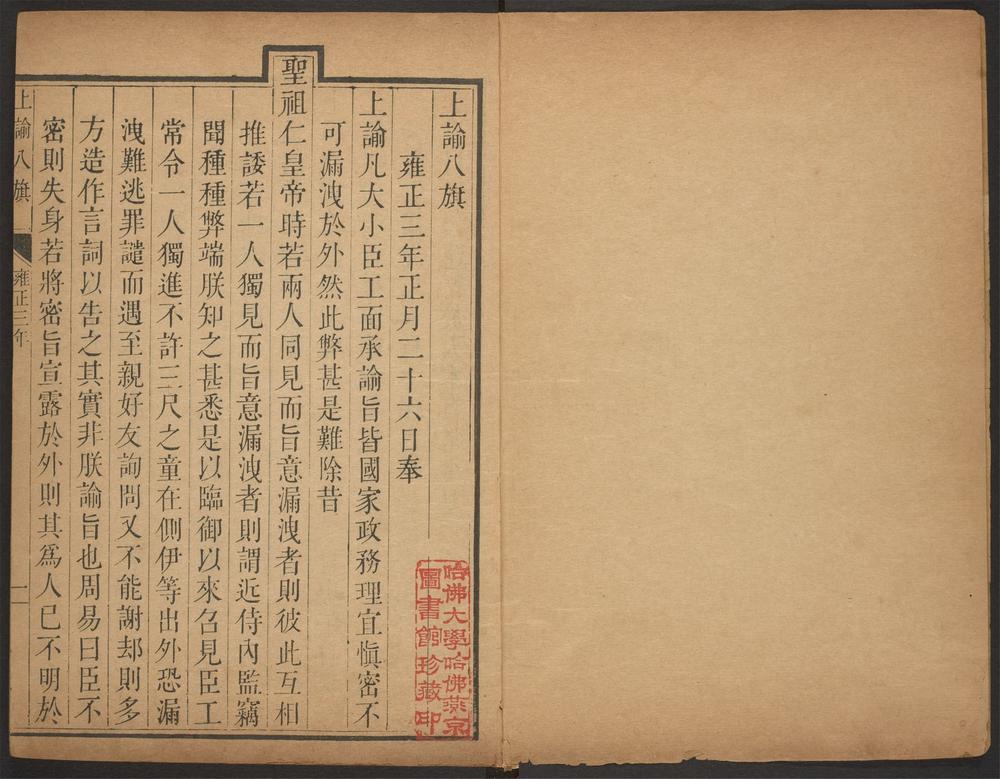 上諭八旗
雍正三年正月二十六日奉
上諭凡大小臣工面承諭旨皆國家政務理宜愼密不
可漏洩於外然此弊甚是難除昔
聖祖仁皇帝時若兩人同見而旨意漏洩者則彼此互相
推諉若一人獨見而旨意漏洩者則謂近侍內監竊
聞種種弊端朕知之甚悉是以臨御以來召見臣工
常令一人獨進不許三尺之童在側伊等出外恐漏
洩難逃罪譴而遇至親好友詢問又不能謝却則多
方造作言詞以告之其實非朕諭旨也周易曰臣不
密則失身若將密旨宣露於外則其爲人已不明於
上諭八旗
雍正三年
一
哈佛大學哈佛燕京
圖書館珍藏印